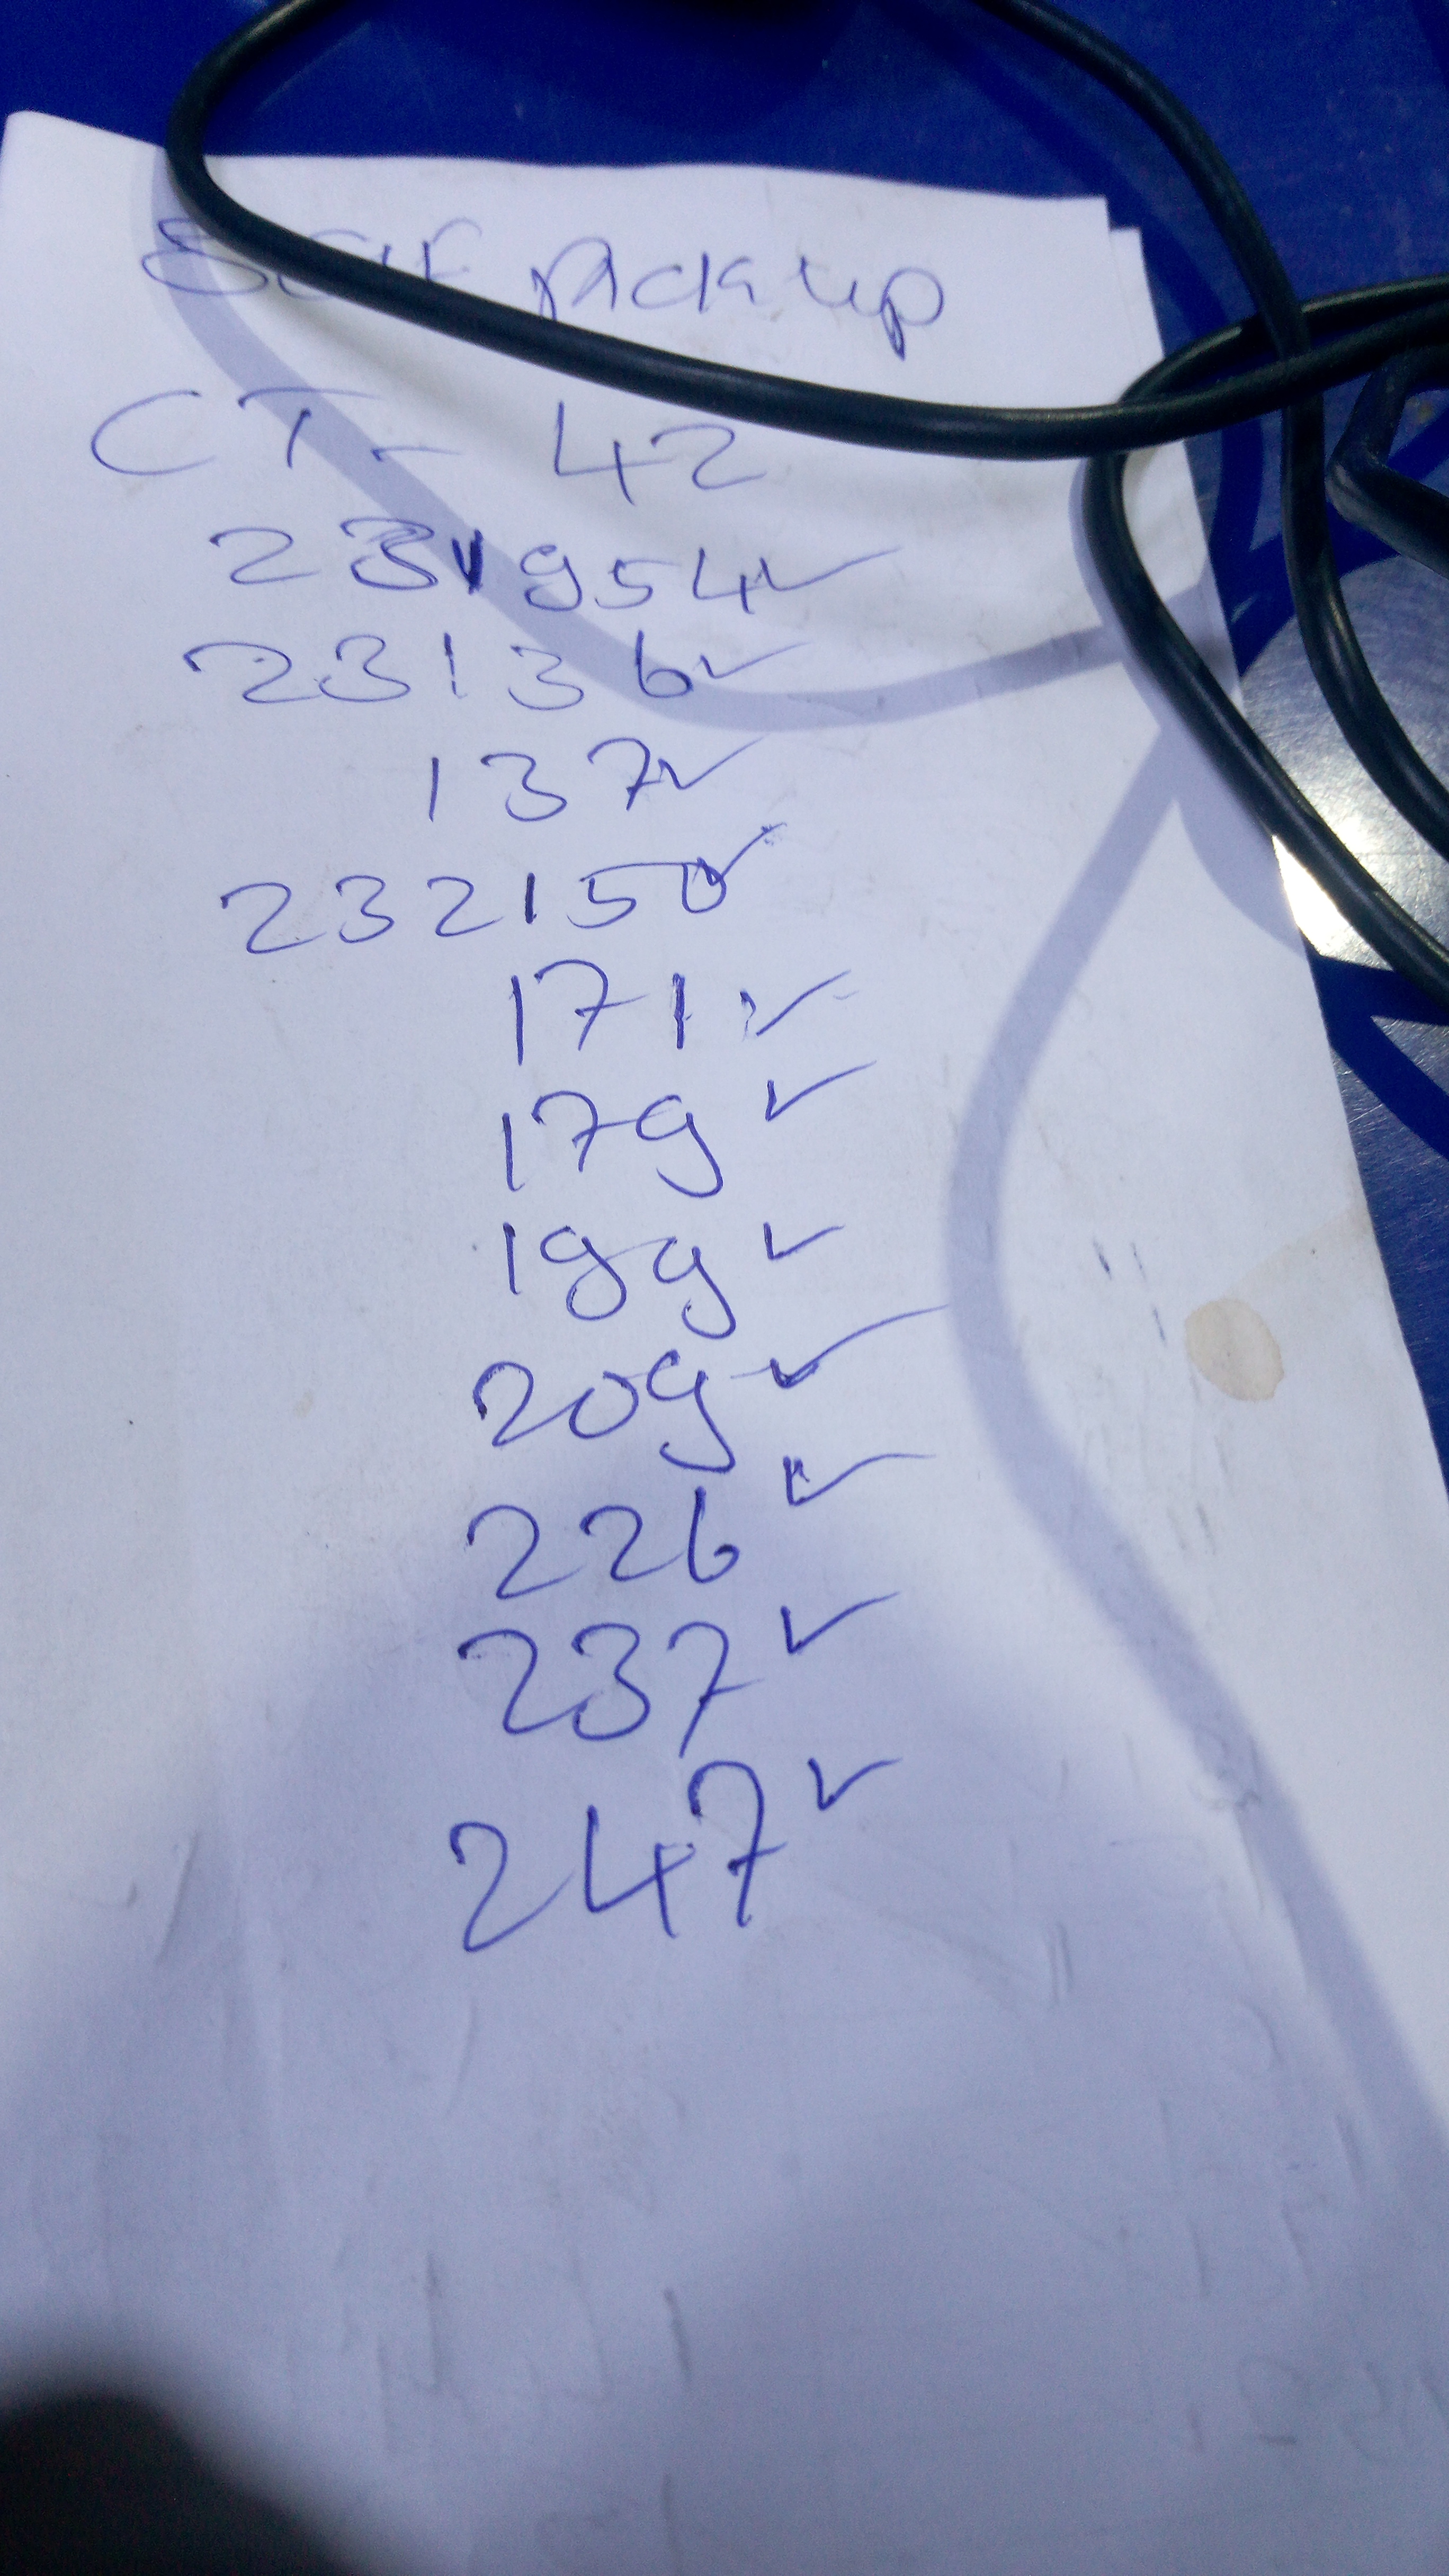 Self pick up
CT - 42
231954 ✓
23136 ✓
137 ✓
232150 ✓
171 ✓
179 ✓
199 ✓
209 ✓
226 ✓
237 ✓
247 ✓